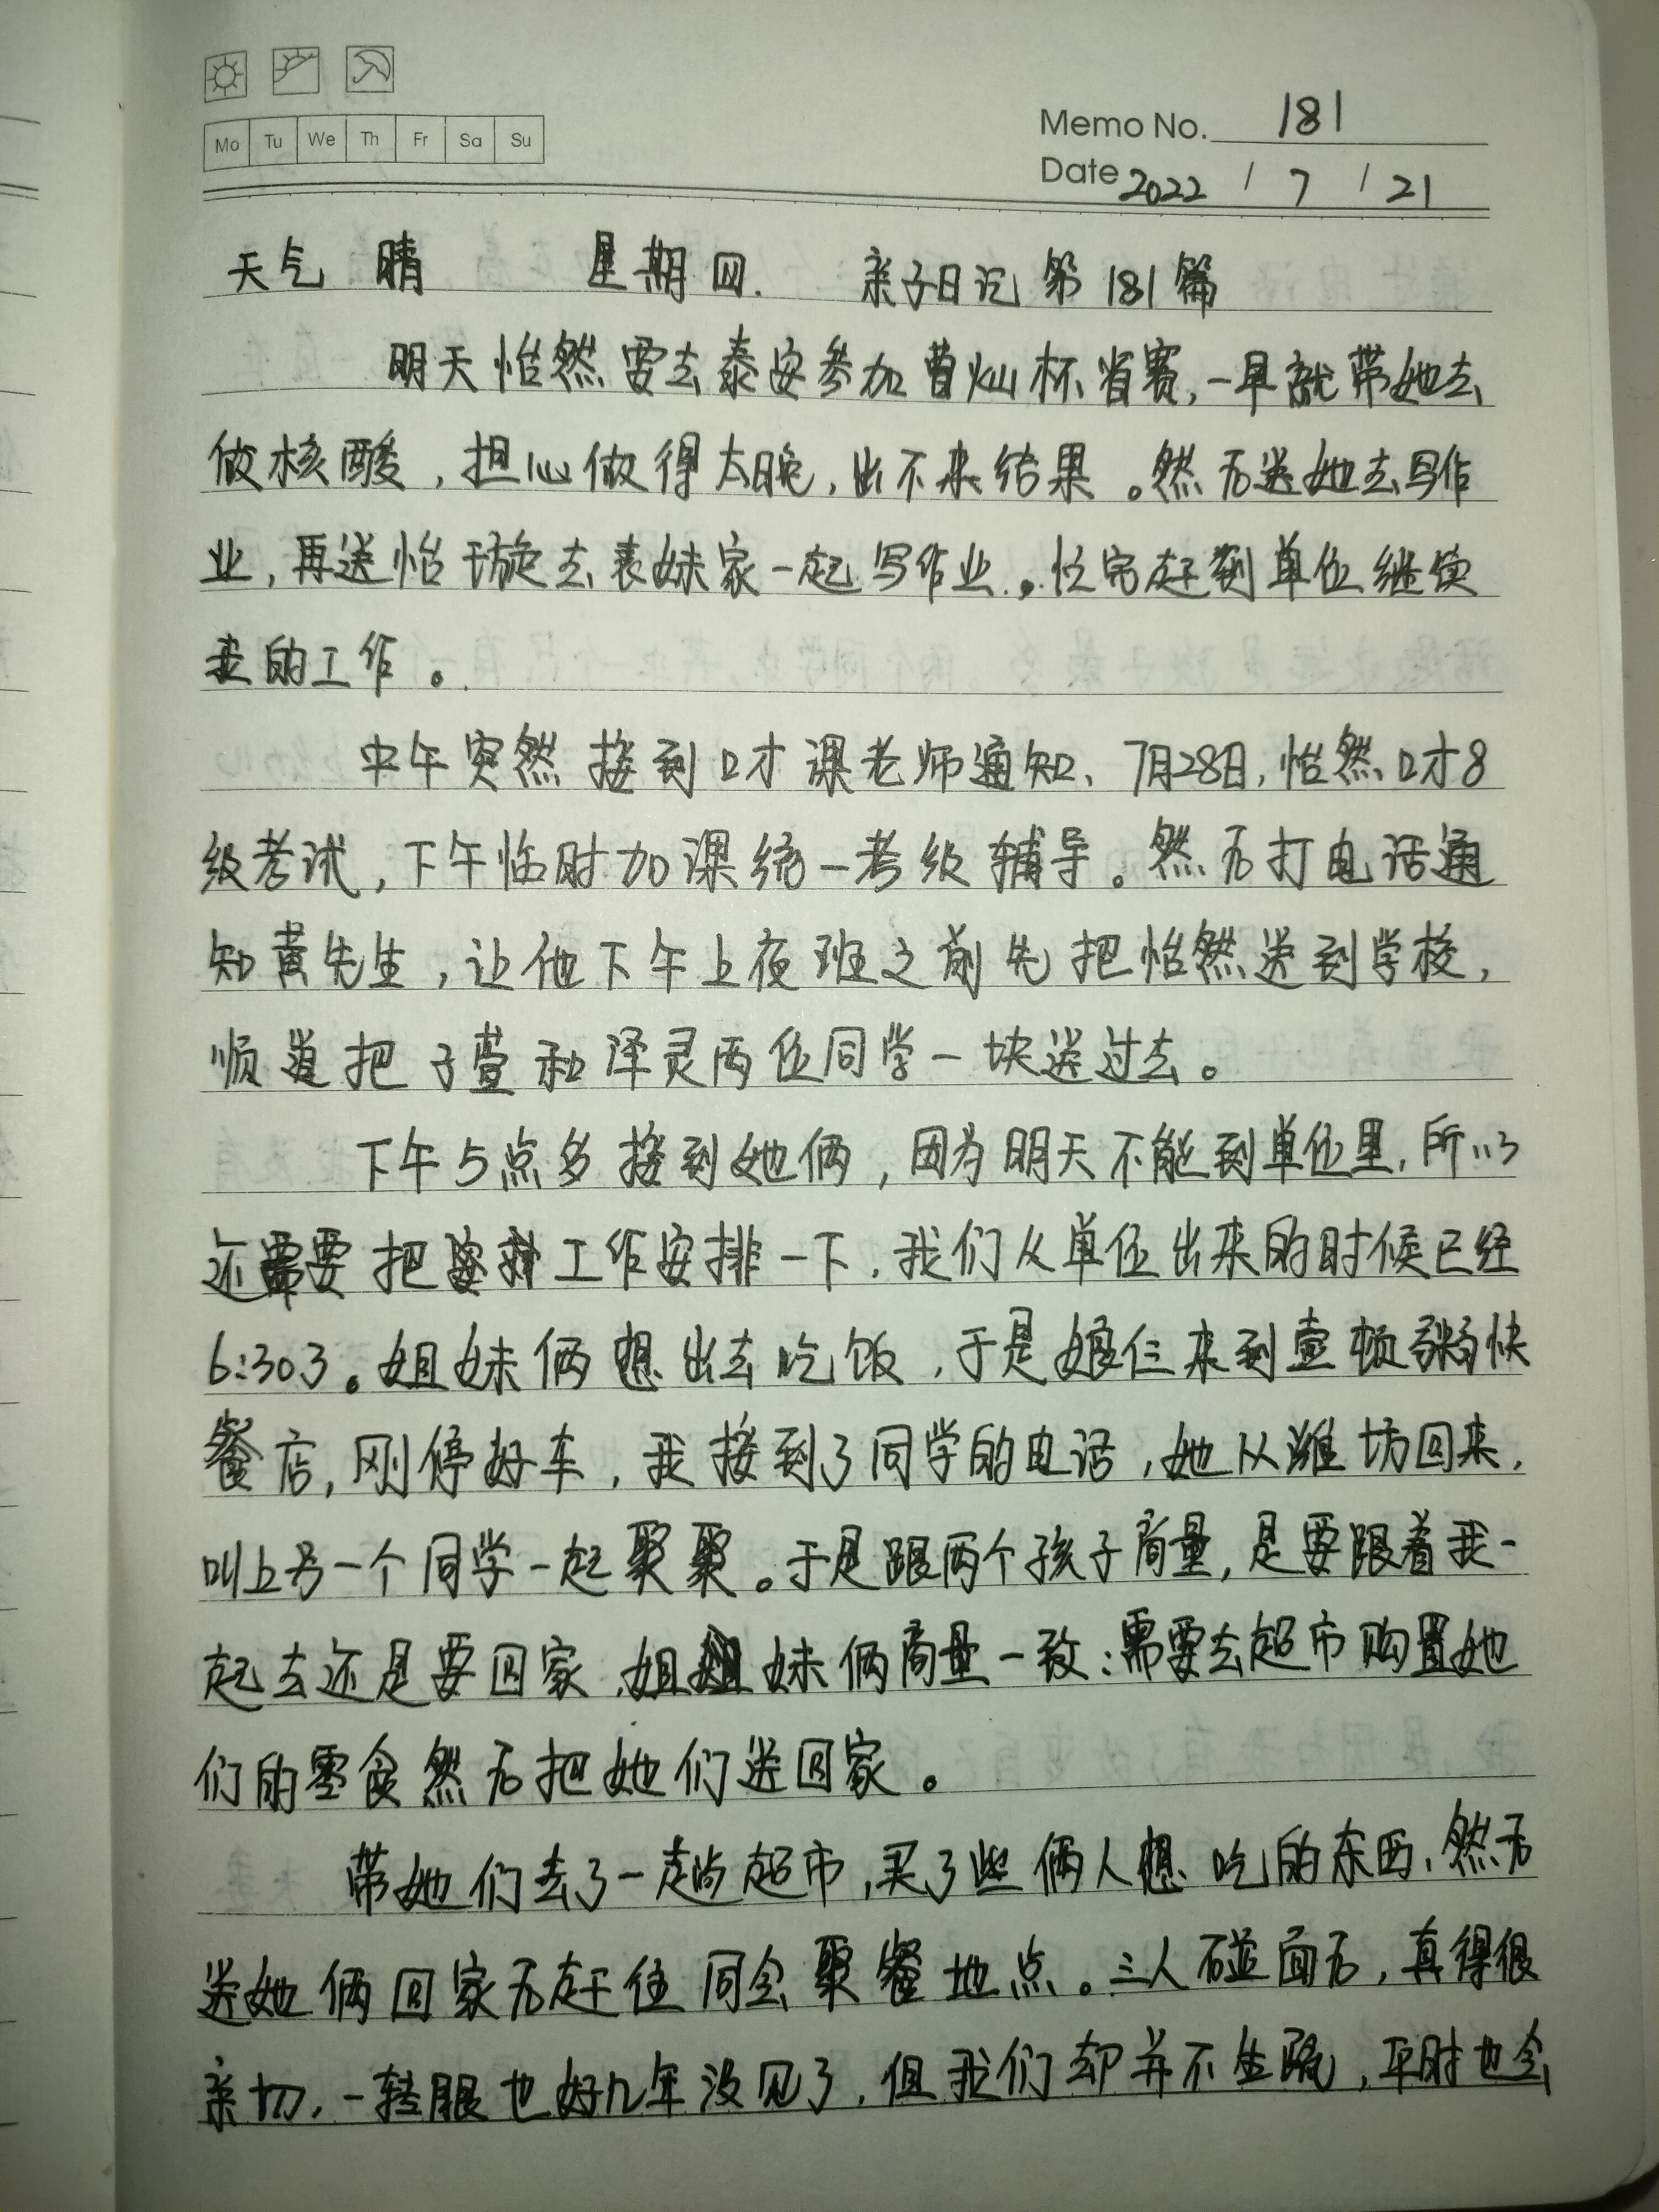 Mo Tu We Th Fr Sa Su
Memo No. 181
Date 2022 / 7 / 21
天气 晴 星期四. 亲子日记第181篇
明天怡然要去泰安参加曹灿杯省赛,一早就带她去
做核酸,担心做得太晚,出不来结果。然后送她去写作
业,再送怡璇去表妹家一起写作业。忙完赶到单位继续
我的工作。
中午突然接到口才课老师通知、7月28日,怡然口才8
级考试,下午临时加课统一考级辅导。然后打电话通
知黄先生,让他下午上夜班之前先把怡然送到学校,
顺道把子萱和泽灵两位同学一块送过去。
下午5点多接到她俩,因为明天不能到单位里,所以
还需要把工作安排一下,我们从单位出来的时候已经
6:30了。姐妹俩想出去吃饭,于是娘仨来到壹顿粥快
餐店,刚停好车,我接到了同学的电话,她从潍坊回来,
叫上另一个同学一起聚聚。于是跟两个孩子商量,是要跟着我一
起去还是要回家,姐妹俩商量一致:需要去超市购置她
们的零食然后把她们送回家。
带她们去了一趟超市,买了些俩人想吃的东西,然后
送她俩回家后赶往同会聚餐地点。三人碰面后,真得很
亲切,一转眼也好几年没见了,但我们却并不生疏,平时也会